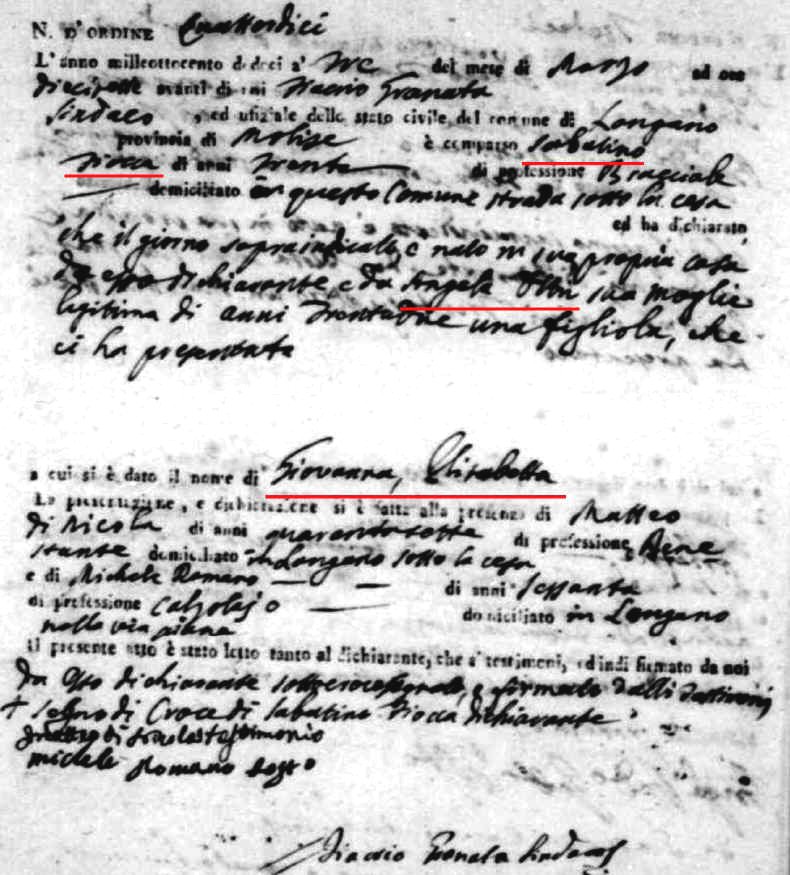 N. D'ORDINE Quattordici
L'anno milleottocento dodeci a' tre del mese di Marzo ad ore
diecisette avanti di noi Granata
Sindaco ed ufiziale dello stato civile del comune di Longano
provincia di Molise è comparso Sabatino
Piocca di anni trenta di professione Bracciale
domiciliato in questo Comune strada sotto la cesa
ed ha dichiarato
che il giorno sopraindicato, è nato in sua propria casa
da esso dichiarante e da Angela sua moglie
legitima di anni una figliola, che
ci ha presentata
a cui si è dato il nome di Giovanna, Elisabetta
La presentazione, e dichiarazione si è fatta alla presenza di Matteo
di Nicola di anni quarantasette di professione Bene
stante domiciliato in Longano sotto la cesa
e di Michele Romano di anni sessanta
di professione Calzolajo domiciliato in Longano
nella via piana
Il presente atto è stato letto tanto al dichiarante, che a' testimoni, ed indi firmato da noi
da esso dichiarante sottocrocesegnato, e firmato dalli
+ Segno di Croce di Sabatino Piocca dichiarante
di Nicola testimonio
michele Romano
Granata Sindaco